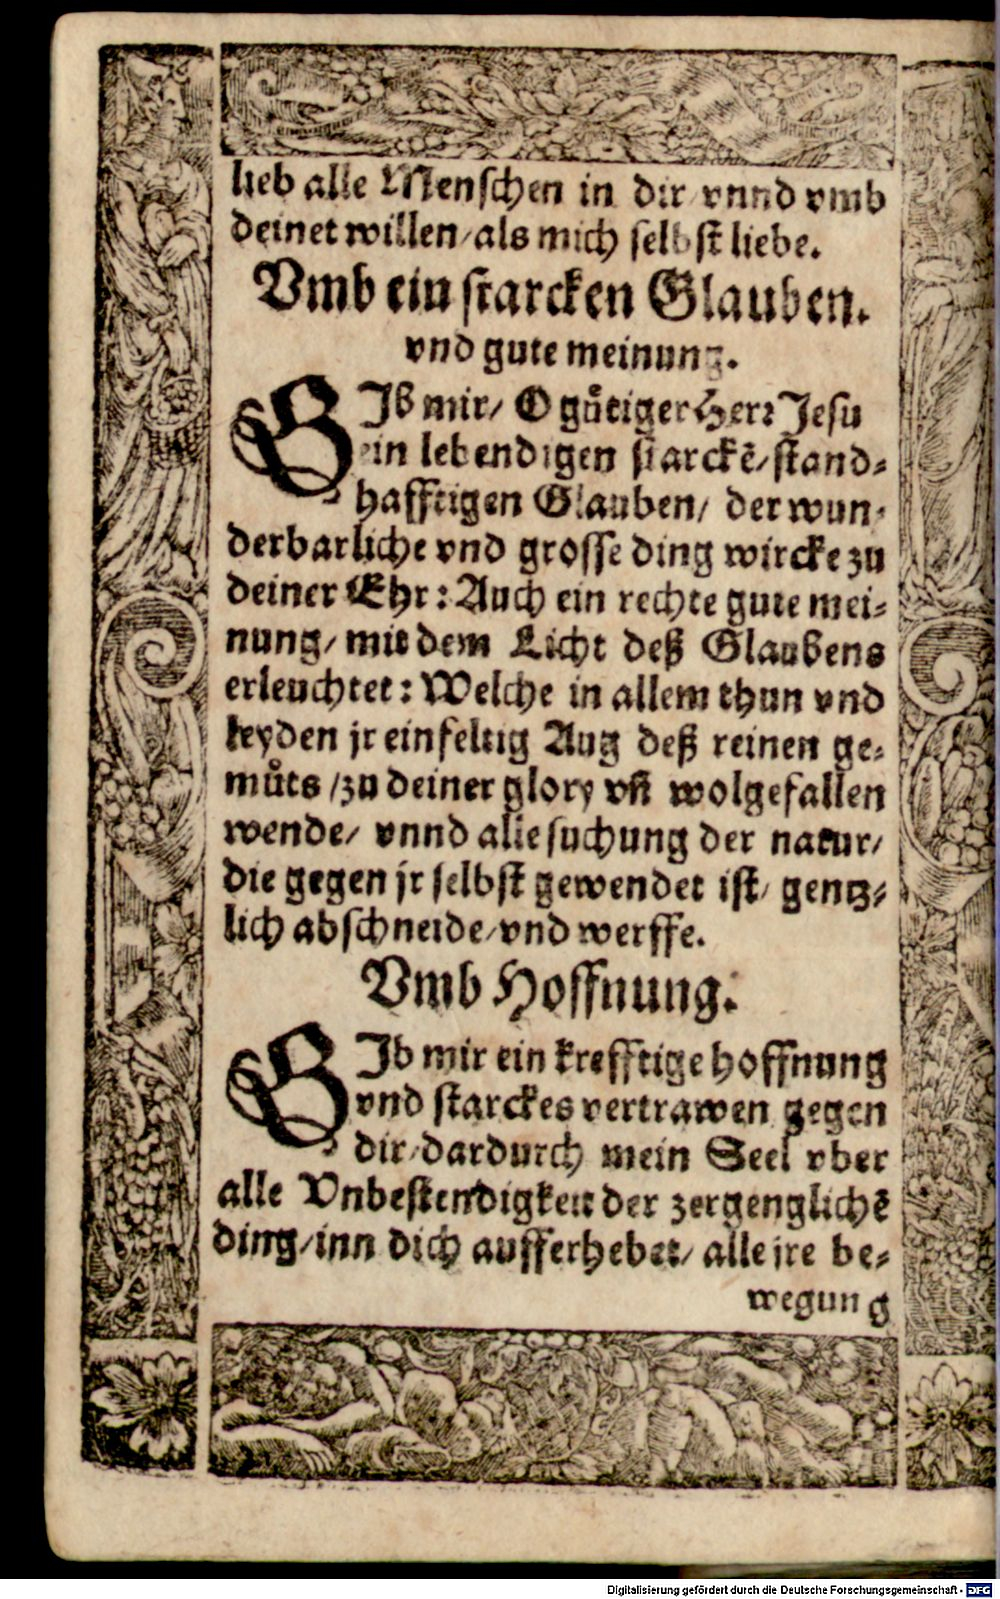 lieb alle Menschen in dir/ vnnd vmb
deinet willen/ als mich selbst liebe.
Vmb ein starcken Glauben.
vnd gute meinung.
GIb mir/ O guͤtiger Herr Jesu
ein lebendigen starckẽ/ stand⸗
hafftigen Glauben/ der wun⸗
derbarliche vnd grosse ding wircke zu
deiner Ehr: Auch ein rechte gute mei⸗
nung/ mit dem Licht deß Glaubens
erleuchtet: Welche in allem thun vnd
leyden jr einfeltig Aug deß reinen ge⸗
muͤts/ zu deiner glory vñ wolgefallen
wende/ vnnd alle suchung der natur/
die gegen jr selbst gewendet ist/ gentz⸗
lich abschneide/ vnd werffe.
Vmb Hoffnung.
GIb mir ein krefftige hoffnung
vnd starckes vertrawen gegen
dir/ dardurch mein Seel vber
alle Vnbestendigkeit der zergenglichẽ
ding/ inn dich aufferhebet/ alle jre be⸗
wegung
Digitalisierung gefördert durch die Deutsche Forschungsgemeinschaft - DFG